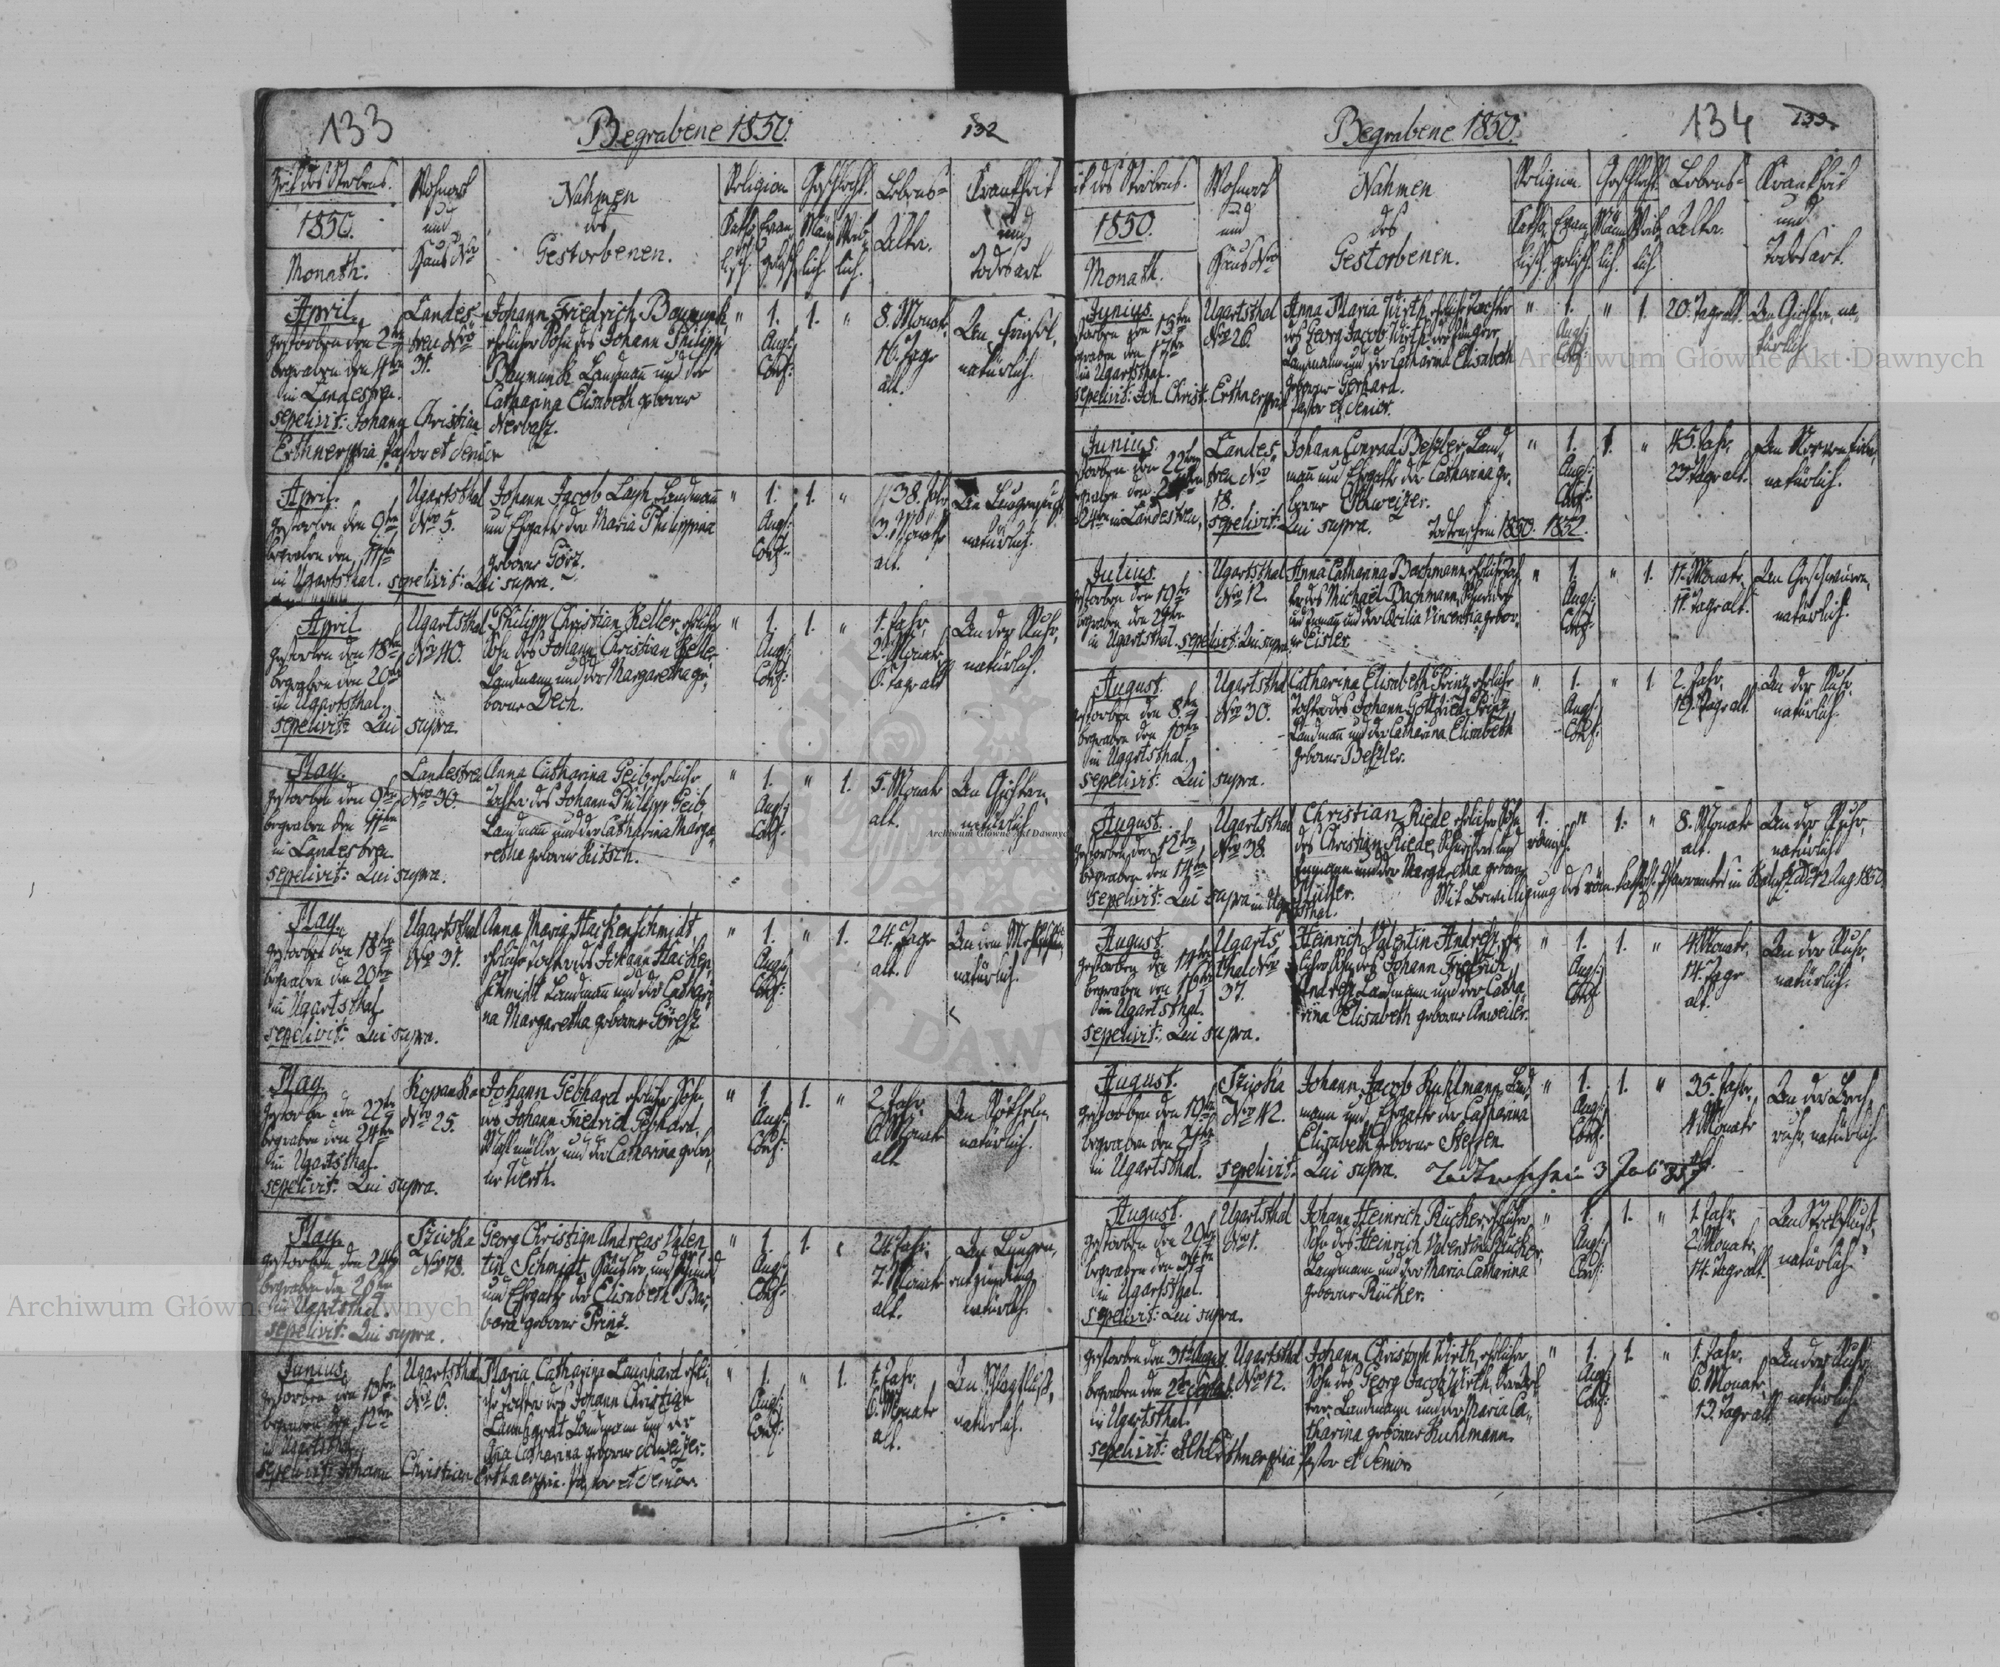 133
Begrabene 1850.
132
Zeit des Sterbens.
1850.
Monath:
Wohnort
und
Haus Nro
Nahmen
des
Gestorbenen.
Religion
Katho-
lisch.
Evan-
gelisch
Geschlecht.
Män-
lich.
Weib-
lich.
Lebens-
Alter.
Krankheit
und
Todesart.
April.
gestorben den 2ten
begraben den 4ten
in Landestreu.
sepelivit: Johann Christian
Erthner Pastor et Senior
Landes-
treu Nro
31.
Johann Friedrich Baumunk,
ehelicher Sohn des Johann Philipp
Baumunk Landmann und der
Catharina Elisabeth geborne
" 1. 1. "
Augs:
Conf:
8. Monat
16. Tage
alt.
natürlich.
April.
gestorben den 9ten
begraben den 11ten
in Ugartsthal. sepelivit: Qui supra.
Ugartsthal
Nro 5.
Johann Jacob Layh Landmann
und Ehegatte der Maria Philippina
geborne Görz.
" 1. 1. "
Augs:
Conf:
38. Jahr
3. Monathe
alt.
natürlich.
April
gestorben den 18ten
begraben den 20ten
in Ugartsthal.
sepelivit: Qui supra.
Ugartsthal
Nro 40.
Philipp Christian Keller ehelicher
Sohn des Johann Christian Keller
Landmann und der Margaretha ge-
borne Dech.
" 1. 1. "
Augs:
Conf:
1. Jahr,
2. Monate
6. Tage alt
An der Ruhr,
natürlich.
May.
gestorben den 9ten
begraben den 11ten
in Landestreu.
sepelivit: Qui supra.
Landestreu
Nro 30.
Anna Catharina Geib, eheliche
Tochter des Johann Philipp Geib
Landmann und der Catharina Marga-
retha geborne Kitsch.
" 1. " 1.
Augs:
Conf:
5. Monate
alt.
An Gichten,
natürlich.
May.
gestorben den 18ten
begraben den 20ten
in Ugartsthal
sepelivit: Qui supra.
Ugartsthal
Nro 31.
Anna Maria Hackenschmidt
eheliche Tochter des Johann Hacken-
schmidt Landmann und der Cathari-
na Margaretha geborne Göres.
" 1. " 1.
Augs:
Conf:
24. Tage
alt.
natürlich.
May.
gestorben den 22ten
begraben den 24ten
in Ugartsthal.
sepelivit: Qui supra.
Kopanka
Nro 25.
Johann Gebhard ehelicher Sohn
des Johann Friedrich Gebhard,
Mahlmüller, und der Catharina gebor-
ne Werth.
" 1. 1. "
Augs:
Conf:
2. Jahr
6. Monate
alt
An Rötheln,
natürlich.
May.
gestorben den 24ten
begraben den 26ten
in Ugartsthal.
sepelivit: Qui supra.
Sziwka
Nro 78.
Georg Christian Andreas Valen-
tin Schmidt, Häusler und Schmied
und Ehegatte der Elisabeth Bar-
bara geborne Prinz.
" 1. 1. "
Augs:
Conf:
24. Jahr
7. Monate
alt.
An Lungen
entzündung
natürlich.
Junius.
gestorben den 10ten
begraben den 12ten
in Ugartsthal
sepelivit: Johann Christian Erthner Pastor et Senior.
Ugartsthal
Nro 6.
Maria Catharina Launhard eheli-
che Tochter des Johann Christian
Launhardt Landmann und der
Ana Catharina geborne Schweizer.
" 1. " 1.
Augs:
Conf:
1. Jahr,
6. Monate
alt.
An Schlagfluß,
natürlich.
Begrabene 1850.
134
133.
Zeit des Sterbens.
1850.
Monath.
Wohnort
und
Haus Nro
Nahmen
des
Gestorbenen.
Religion.
Katho-
lisch.
Evan-
gelisch.
Geschlecht.
Männ-
lich.
Weib-
lich.
Lebens-
Alter.
Krankheit
und
Todesart.
Junius.
gestorben den 15ten
begraben den 17ten
in Ugartsthal.
sepelivit: Joh. Christ. Erthner
Pastor et Senior.
Ugartsthal
Nro 26.
Anna Maria Wirth, eheliche Tochter
des Georg Jacob Wirth des Jüngern,
Landmann und der Catharina Elisabeth
geborne Gerhard.
" 1. " 1.
Augs:
Conf:
20. Tage alt.
An Gichtern, na-
türlich
Junius.
gestorben den 22ten
begraben den
24ten in Landestreu,
Landes-
treu Nro
18.
Johann Conrad Betzler, Land-
mann und Ehegatte der Catharina ge-
borne Schweizer.
sepelivit: Qui supra. Todtenschein 1850. 1852.
" 1. 1. "
Augs:
Conf:
45. Jahr,
23. Tage alt.
An Nervenfieber,
natürlich.
Julius.
gestorben den 19ten
begraben den 21ten
in Ugartsthal. sepelivit: Qui supra.
Ugartsthal
Nro 12.
Anna Catharina Bachmann, eheliche Toch-
ter des Michael Bachmann, Schneider
und Inmann und der Cecilia Vincentia gebor-
ne Eisler.
" 1. " 1.
Augs:
Conf:
11. Monate,
11. Tage alt.
An Geschwüren,
natürlich.
August.
gestorben den 8ten
begraben den 10ten
in Ugartsthal.
sepelivit: Qui supra.
Ugartsthal
Nro 30.
Catharina Elisabeth Prinz eheliche
Tochter des Johann Gottfried Prinz,
Landmann und der Catharina Elisabeth
geborne Betzler.
" 1. " 1
Augs:
Conf:
2. Jahr,
19. Tage alt.
An der Ruhr,
natürlich.
August.
gestorben den 12ten
begraben den 14ten
sepelivit: Qui supra in Ugartsthal.
Ugartsthal
Nro 38.
Christian Riede ehelicher Sohn
des Christian Riede, Schneider und
Inmann und der Margaretha geborne
Müller.
Mit Bewilligung des röm. kathol. Pfarramtes in Kalusz 12 Aug 1850.
1. " 1. "
römisch.
8. Monate
alt.
An der Ruhr,
natürlich
August.
gestorben den 14ten
begraben den 16ten
in Ugartsthal.
sepelivit: Qui supra.
Ugarts-
thal Nro
37.
Heinrich Valentin Andres, ehe-
licher Sohn des Johann Friedrich
Andres, Landmann und der Catha-
rina Elisabeth geborne Anweiler.
" 1. 1. "
Augs:
Conf:
4. Monate,
14. Tage
alt.
An der Ruhr,
natürlich.
August.
gestorben den 19ten
begraben den 21ten
in Ugartsthal.
Sziwka
Nro 42.
Johann Jacob Kuhlmann, Land-
mann und Ehegatte der Catharina
Elisabeth geborne Steffen.
sepelivit: Qui supra. Todtenschein 3
" 1. 1. "
Augs:
Conf:
35. Jahr,
4. Monate
alt.
natürlich
August.
gestorben den 20ten
begraben den 21ten
in Ugartsthal.
sepelivit: Qui supra.
Ugartsthal
Nro 1.
Johann Heinrich Rücker, ehelicher
Sohn des Heinrich Valentin Rücker,
Landmann und der Maria Catharina
geborne Rücker.
" 1. 1. "
Augs:
Conf:
1. Jahr,
2. Monate,
14. Tage alt.
An Stickfluß,
natürlich.
gestorben den 31ten August
begraben den 2ten Septbr.
in Ugartsthal.
sepelivit: Erthner Pastor et Senior
Ugartsthal
Nro 12.
Johann Christoph Wirth, ehelicher
Sohn des Georg Jacob Wirth,
Landmann und der Maria Ca-
tharina geborne Kuhlmann.
" 1. 1. "
Augs:
Conf:
1. Jahr,
6. Monate
13. Tage alt.
An der Ruhr,
natürlich.
Archiwum Główne Akt Dawnych